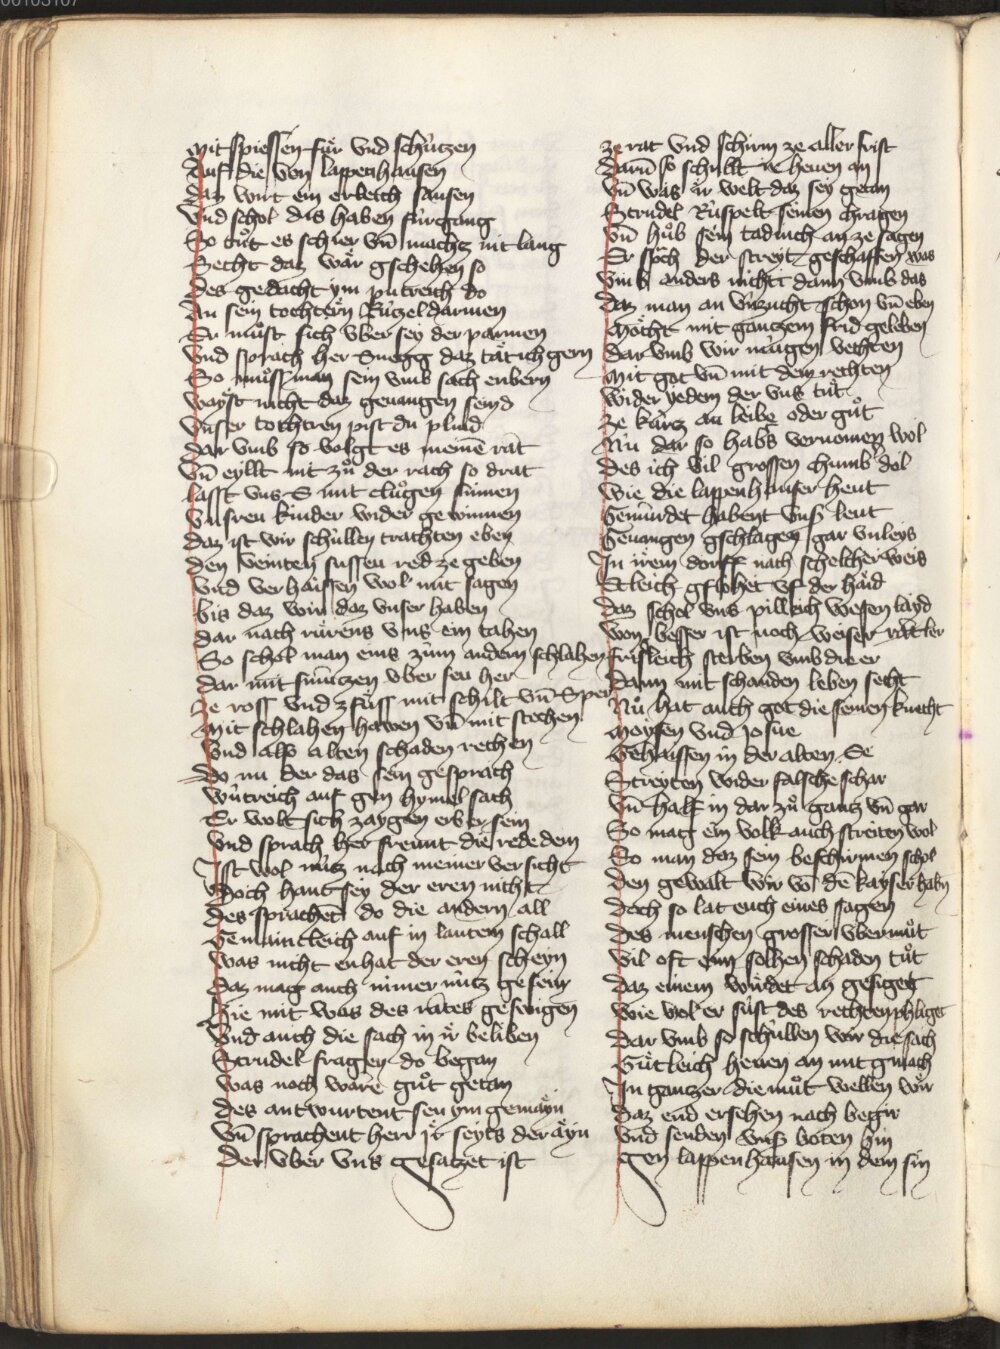 00103107
Mit spiessen für vnd schützen
Auf die von lappenhausen
Daz wirt ein erleich sausen
Vnd schol dis haben fürgang
So tůt es schier vn̄ machtz nit lang
Secht daz wär gschehen so
Des gedacht ym pütreich do
An sein tochtern Rützeldarmen
Er můst sich vber sey der parmen
Vnd sprach her Snegg daz tät ich gern
So můssz man sein vmb sach enbern
Wayst nicht daz geuangen seind
Vnser tochtren pist du plind
Dar vmb so volgt es meinē rat
Vn̄ eyllt nit zů der rach so drat
Lasst vns E mit clůgen sinnen
Vnsren kinder wider gewinnen
Daz ist wir schüllen trachten eben
Den veinten süssen red ze geben
Vnd verhaissen wol mit sagen
Bis daz wir daz vnser haben
Dar nach rürens vns ein tahen
So schol man eins zum andern schlahen
Dar mit sinntzen vber seu her
Ze ross vnd z füss mit schilt vn̄ Sper
Mit schlahen hawen vn̄ mit stechen
Vnd also alten schaden rechen
Do nu der das sein gesprach
Wůtreich auf gen hymel sach
Er wolt sich zaygen erber sein
Vnd sprach her freunt die rede dein
Isst wol nütz nach meiner versicht
Doch hant sey der eren nicht
Des sprachēt do die andern all
Gemaincleich auf in lautem schall
Was nicht enhat der eren scheyn
Daz mag auch nimer nütz gesein
Hie mit was des rātes geswigen
Vnd auch die sach in ir beliben
Strudel fragen do began
Was noch ware gůt getan
Des antwurtent seu ym gemäyn
Vn̄ sprachent herr ir seyts der äyn
Der vber vns gesatzet ist
ze rat vnd schirm ze aller frist
Darū so schüllt ir heuen an
Vn̄ was ir welt daz sey getan
Strudel Rüspelt seinen chragen
Vn̄ hůb sein tädinch an ze sagen
Er sprach der streyt geschaffen was
Vmb anders nicht dann vmb das
Daz man an vnzucht schon vn̄ eben
Möcht mit gantzem frid geleben
Dar vmb wir mügen vechten
Mit got vn̄ mit dem rechten
Wider yedem der vns tůt
Ze kürtz an leibe oder gůt
Nu dar so habs vernomen wol
Des ich vil grossen chumb dol
Wie die lappenhauser heut
Gemürdet habent vnß leut
Geuangen gschlagen gar vnleys
In irem dorff nach schelcher weis
Etleich gflohet vf der häid
Daz schol vns pilleich wesen läyd
Won besser ist noch weiser ratt ler
Frisleich sterben vmb die er
Dann mit schanden leben secht
Nu hat auch got die seinen knecht
Moysen vnd Josue
Gehaissen in der alten Ee
Streyten wider falsche schar
Vn̄ half in dar zů gantz vn̄ gar
So mag ein volk auch streiten wol
So man daz sein beschirmen schol
Den gewalt wir vō dē kayser habn
Doch so lat euch eines sagen
Des menschen grosser vbermůt
Vil oft eim solhen schaden tůt
Daz einem würdet an gesiget
Wie wol er süst des rechten phliget
Dar vmb so schüllen wir die sach
Gütleich heuen an mit gmach
In gantzer diemůt wellen wir
Daz end ersehen nach begir
Vnd senden vnß boten hin
Gen lappenhausen in dem sin